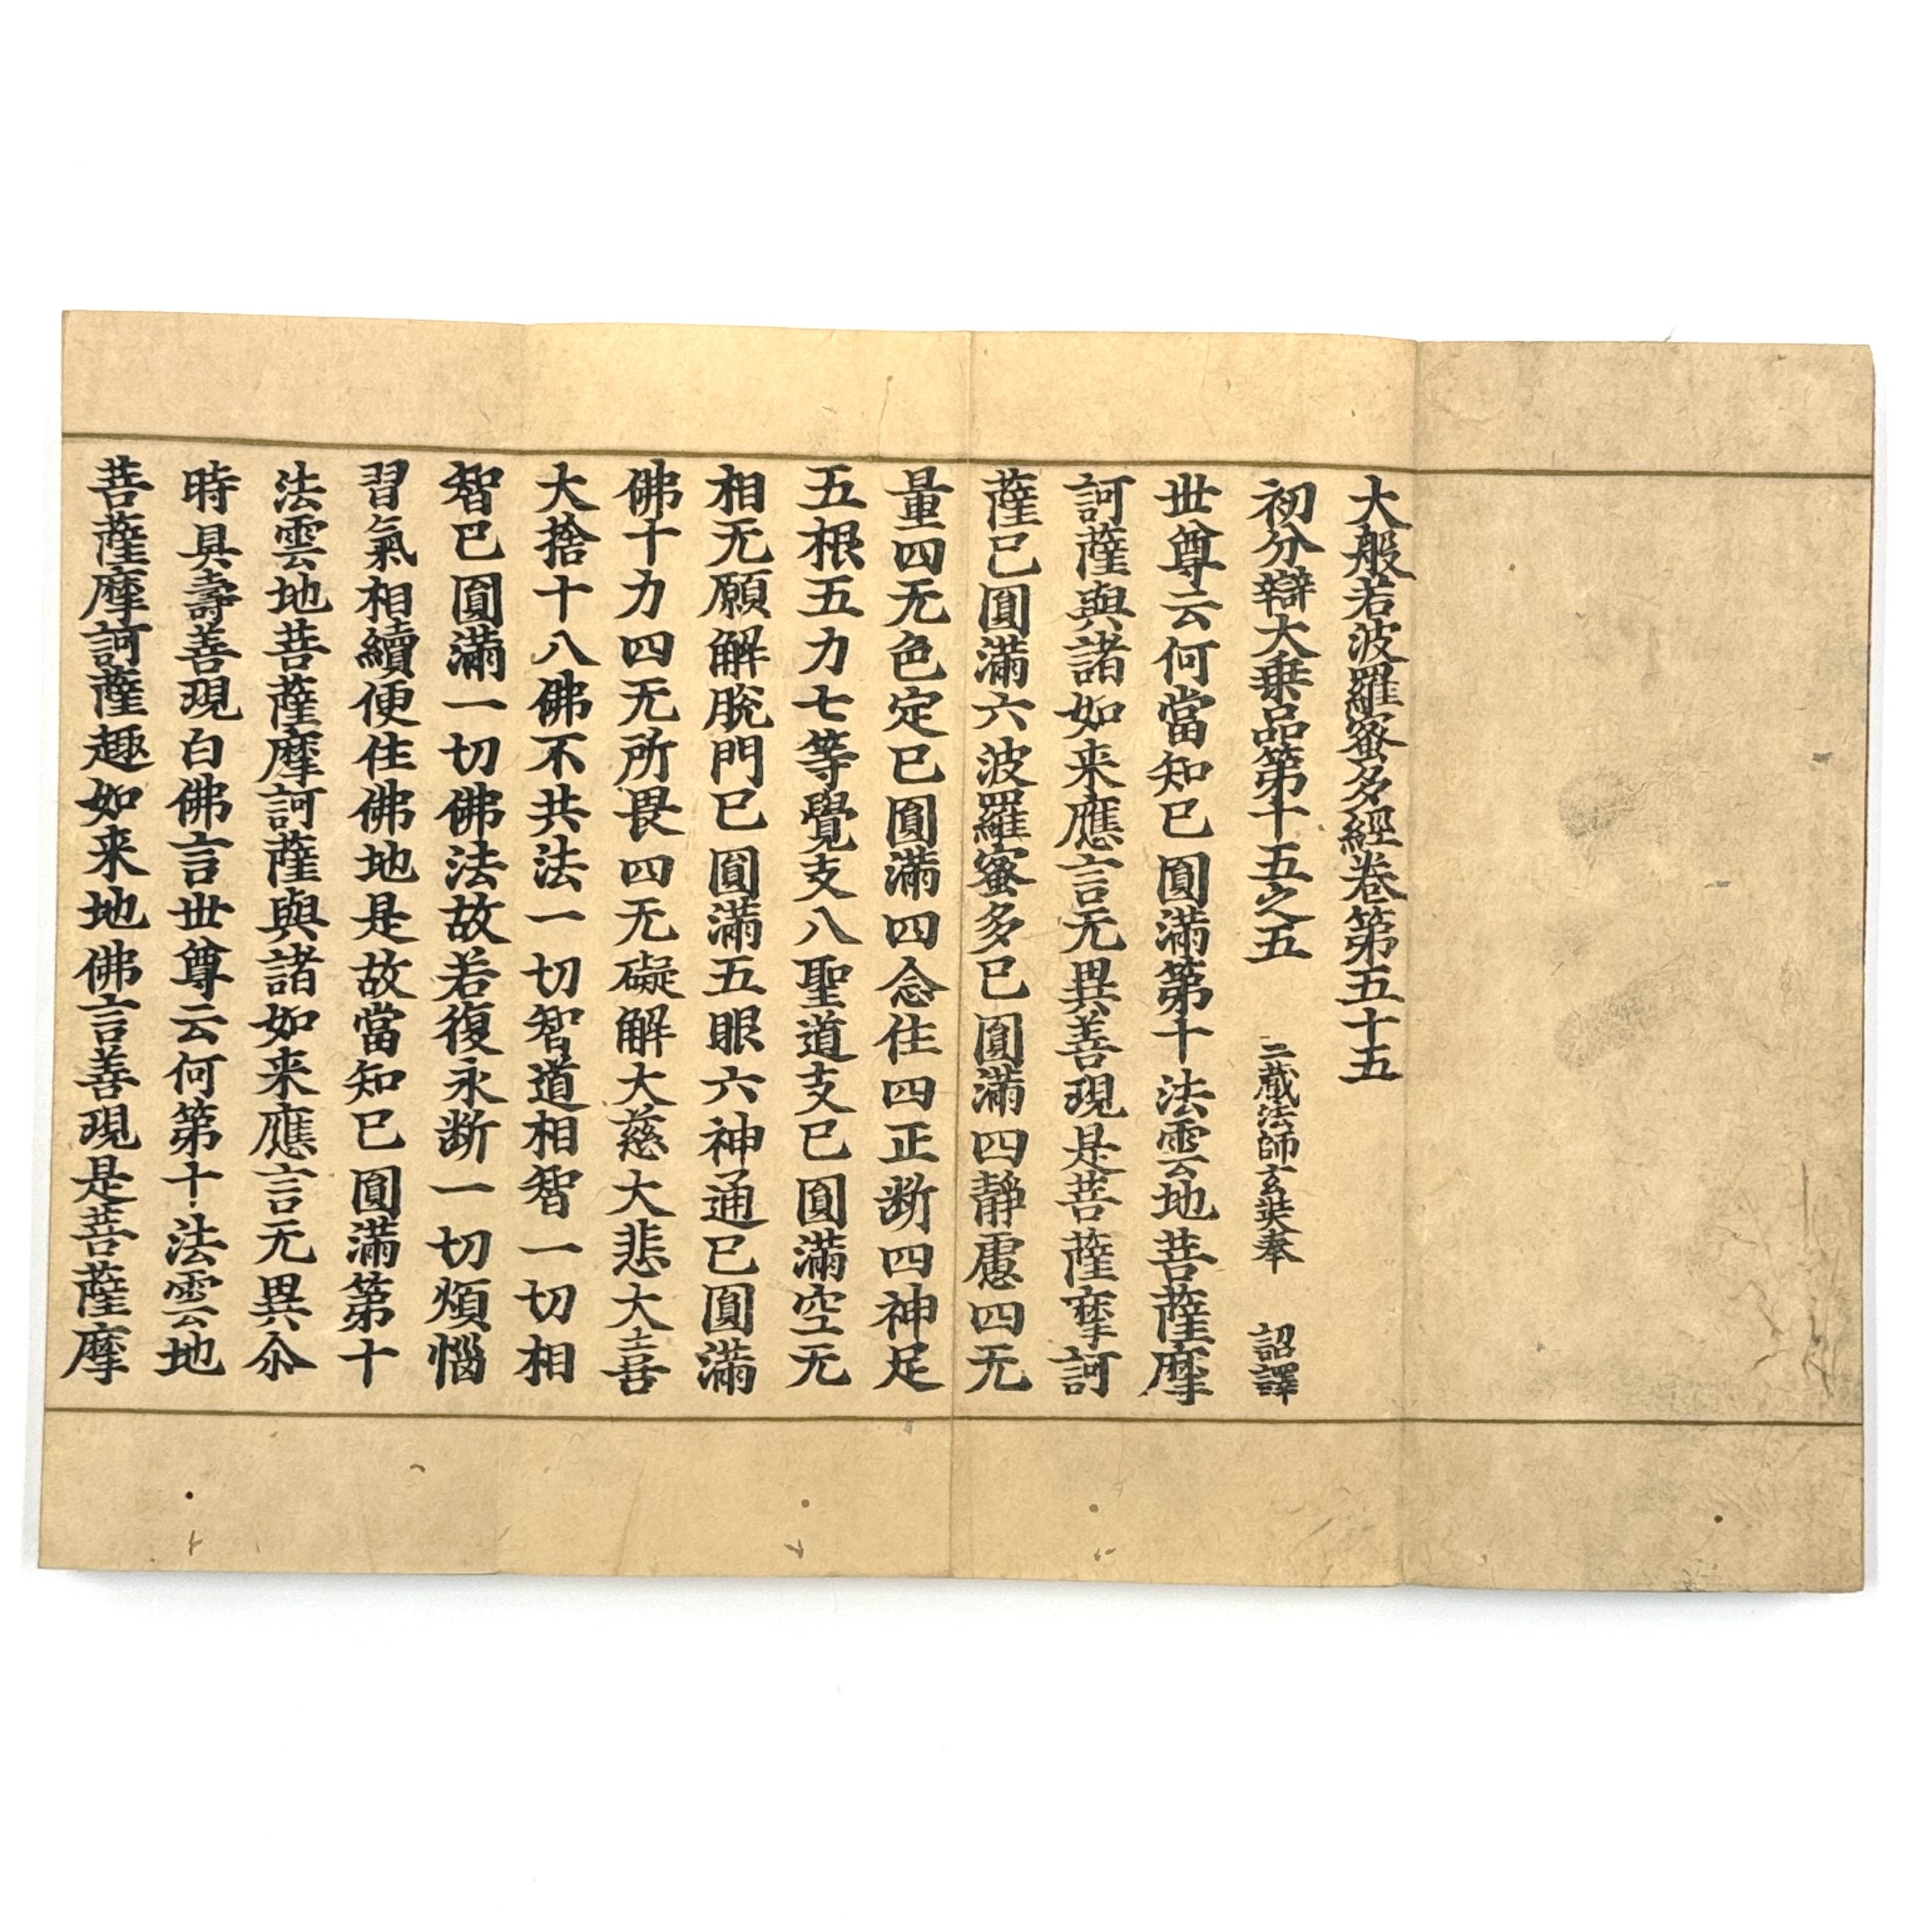 大般若波羅蜜多經卷第五十五
初分辯大乗品第十五之五 三蔵法師玄奘奉 詔譯
世尊云何當知已圓滿第十法雲地菩薩摩
訶薩與諸如来應言无異善現是菩薩摩訶
薩已圓滿六波羅蜜多已圓滿四靜慮四无
量四无色定已圓滿四念住四正断四神足
五根五力七等覺支八聖道支已圓滿空无
相无願解脫門已圓滿五眼六神通已圓滿
佛十力四无所畏四无礙解大慈大悲大喜
大捨十八佛不共法一切智道相智一切相
智已圓滿一切佛法故若復永断一切煩惱
習氣相續便住佛地是故當知已圓滿第十
法雲地菩薩摩訶薩與諸如来應言无異尒
時具壽善現白佛言世尊云何第十法雲地
菩薩摩訶薩趣如来地佛言善現是菩薩摩